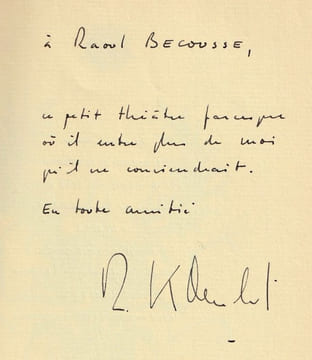 à Raoul BECOUSSE,
ce petit théâtre farcesque
où il entre plus de moi
qu'il ne conviendrait.
En toute amitié
R.